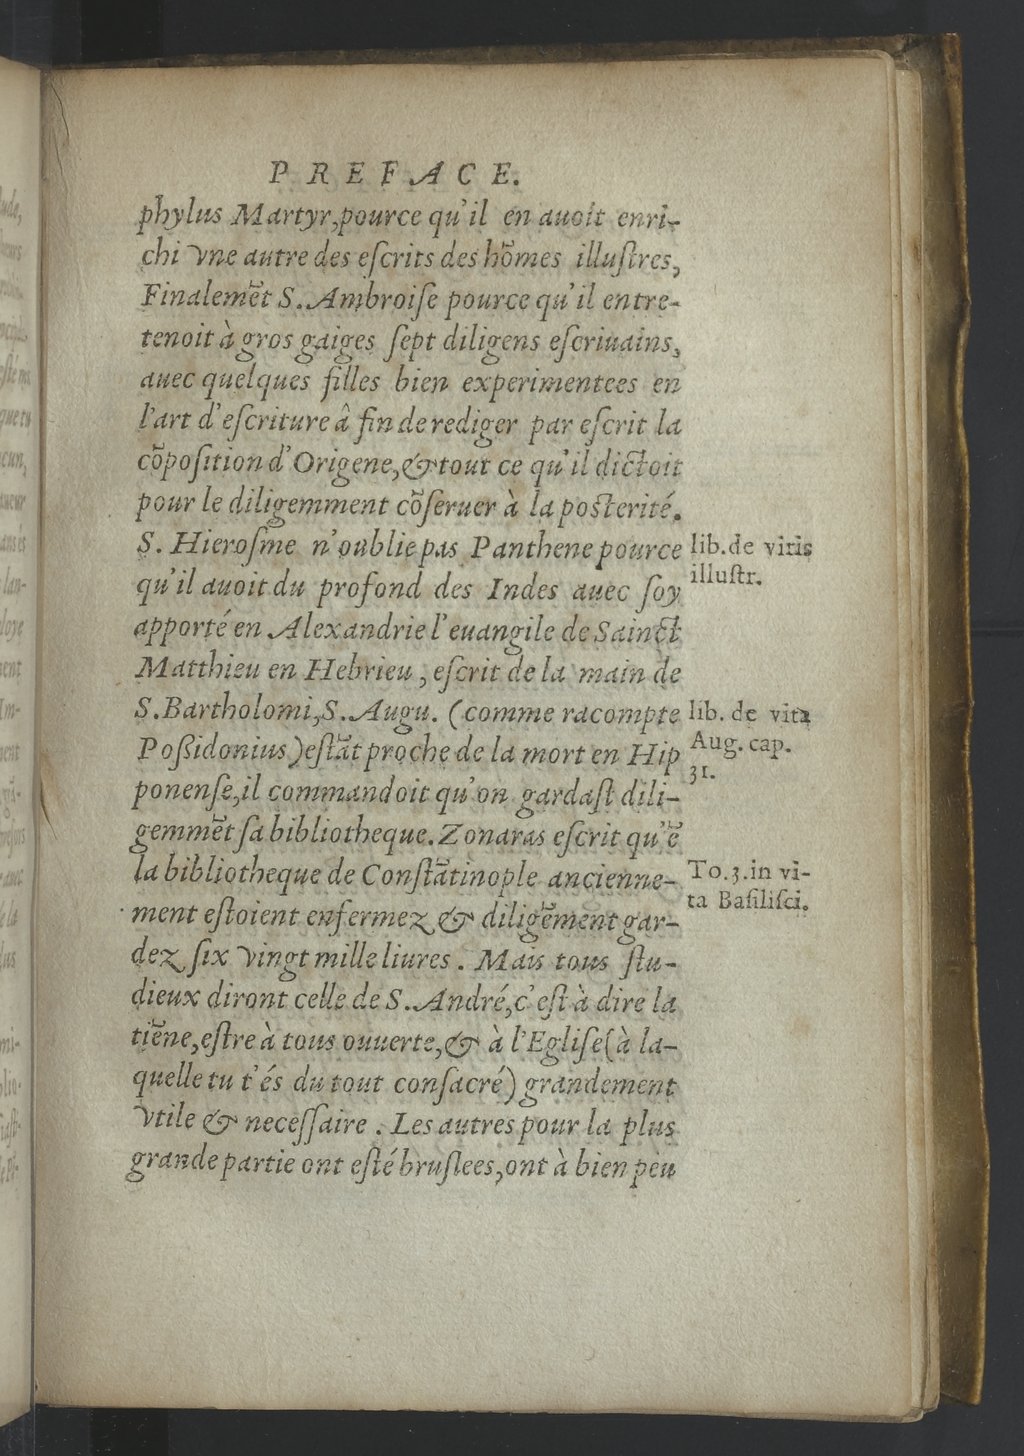 PREFACE.
phylus Martyr, pource qu'il en auoit enri-
chi vne autre des eſcrits des hõmes illuſtres,
Finalemẽt S. Ambroiſe pource qu'il entre-
tenoit à gros gaiges ſept diligens eſcriuains,
auec quelques filles bien experimentees en
l'art d'eſcriture â fin de rediger par eſcrit la
cõpoſition d'Origene, & tout ce qu'il dictoit
pour le diligemment cõſeruer à la poſterité.
S. Hieroſme n'oublie pas Panthene pource
lib. de viris
qu'il auoit du profond des Indes auec ſoy
illuſtr.
apporté en Alexandrie l'euangile de Sainct
Matthieu en Hebrieu, eſcrit de la main de
S. Bartholomi, S. Augu. (comme racompte
lib. de vita
Poſſidonius) eſtãt proche de la mort en Hip
Aug. cap.
31.
ponenſe, il commandoit qu'on gardaſt dili-
gemmẽt ſa bibliotheque. Zonaras eſcrit qu'ẽ
la bibliotheque de Conſtãtinople ancienne-
To. 3. in vi-
ment eſtoient enfermez & diligẽment gar-
ta Baſiliſci.
dez ſix vingt mille liures. Mais tous ſtu-
dieux diront celle de S. André, c'eſt à dire la
tiẽne, eſtre à tous ouuerte, & à l'Egliſe (à la-
quelle tu t'és du tout conſacré) grandement
vtile & neceſſaire. Les autres pour la plus
grande partie ont eſté bruſlees, ont à bien peu